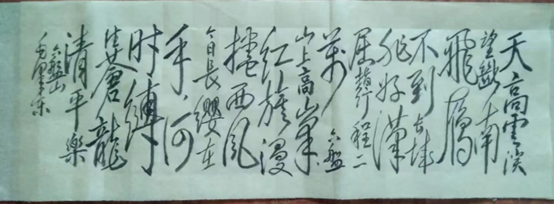 天高雲淡
望斷南
飛雁
不到长城
非好漢
屈指行程二
萬六盤
山上高峯
紅旗漫
捲西風
今日長纓在
手何
时縛
住蒼龍
清平樂
六盤山
毛澤东